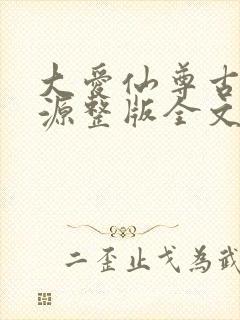 大爱仙尊古
源整版全文
二歪止戈為武